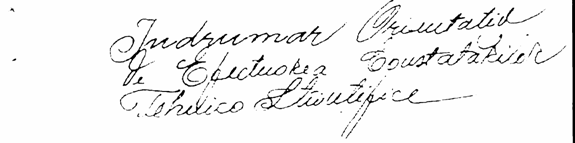 Indrumar Orientativ
de Efectuarea Constatarilor
Tehnico Stiintifice